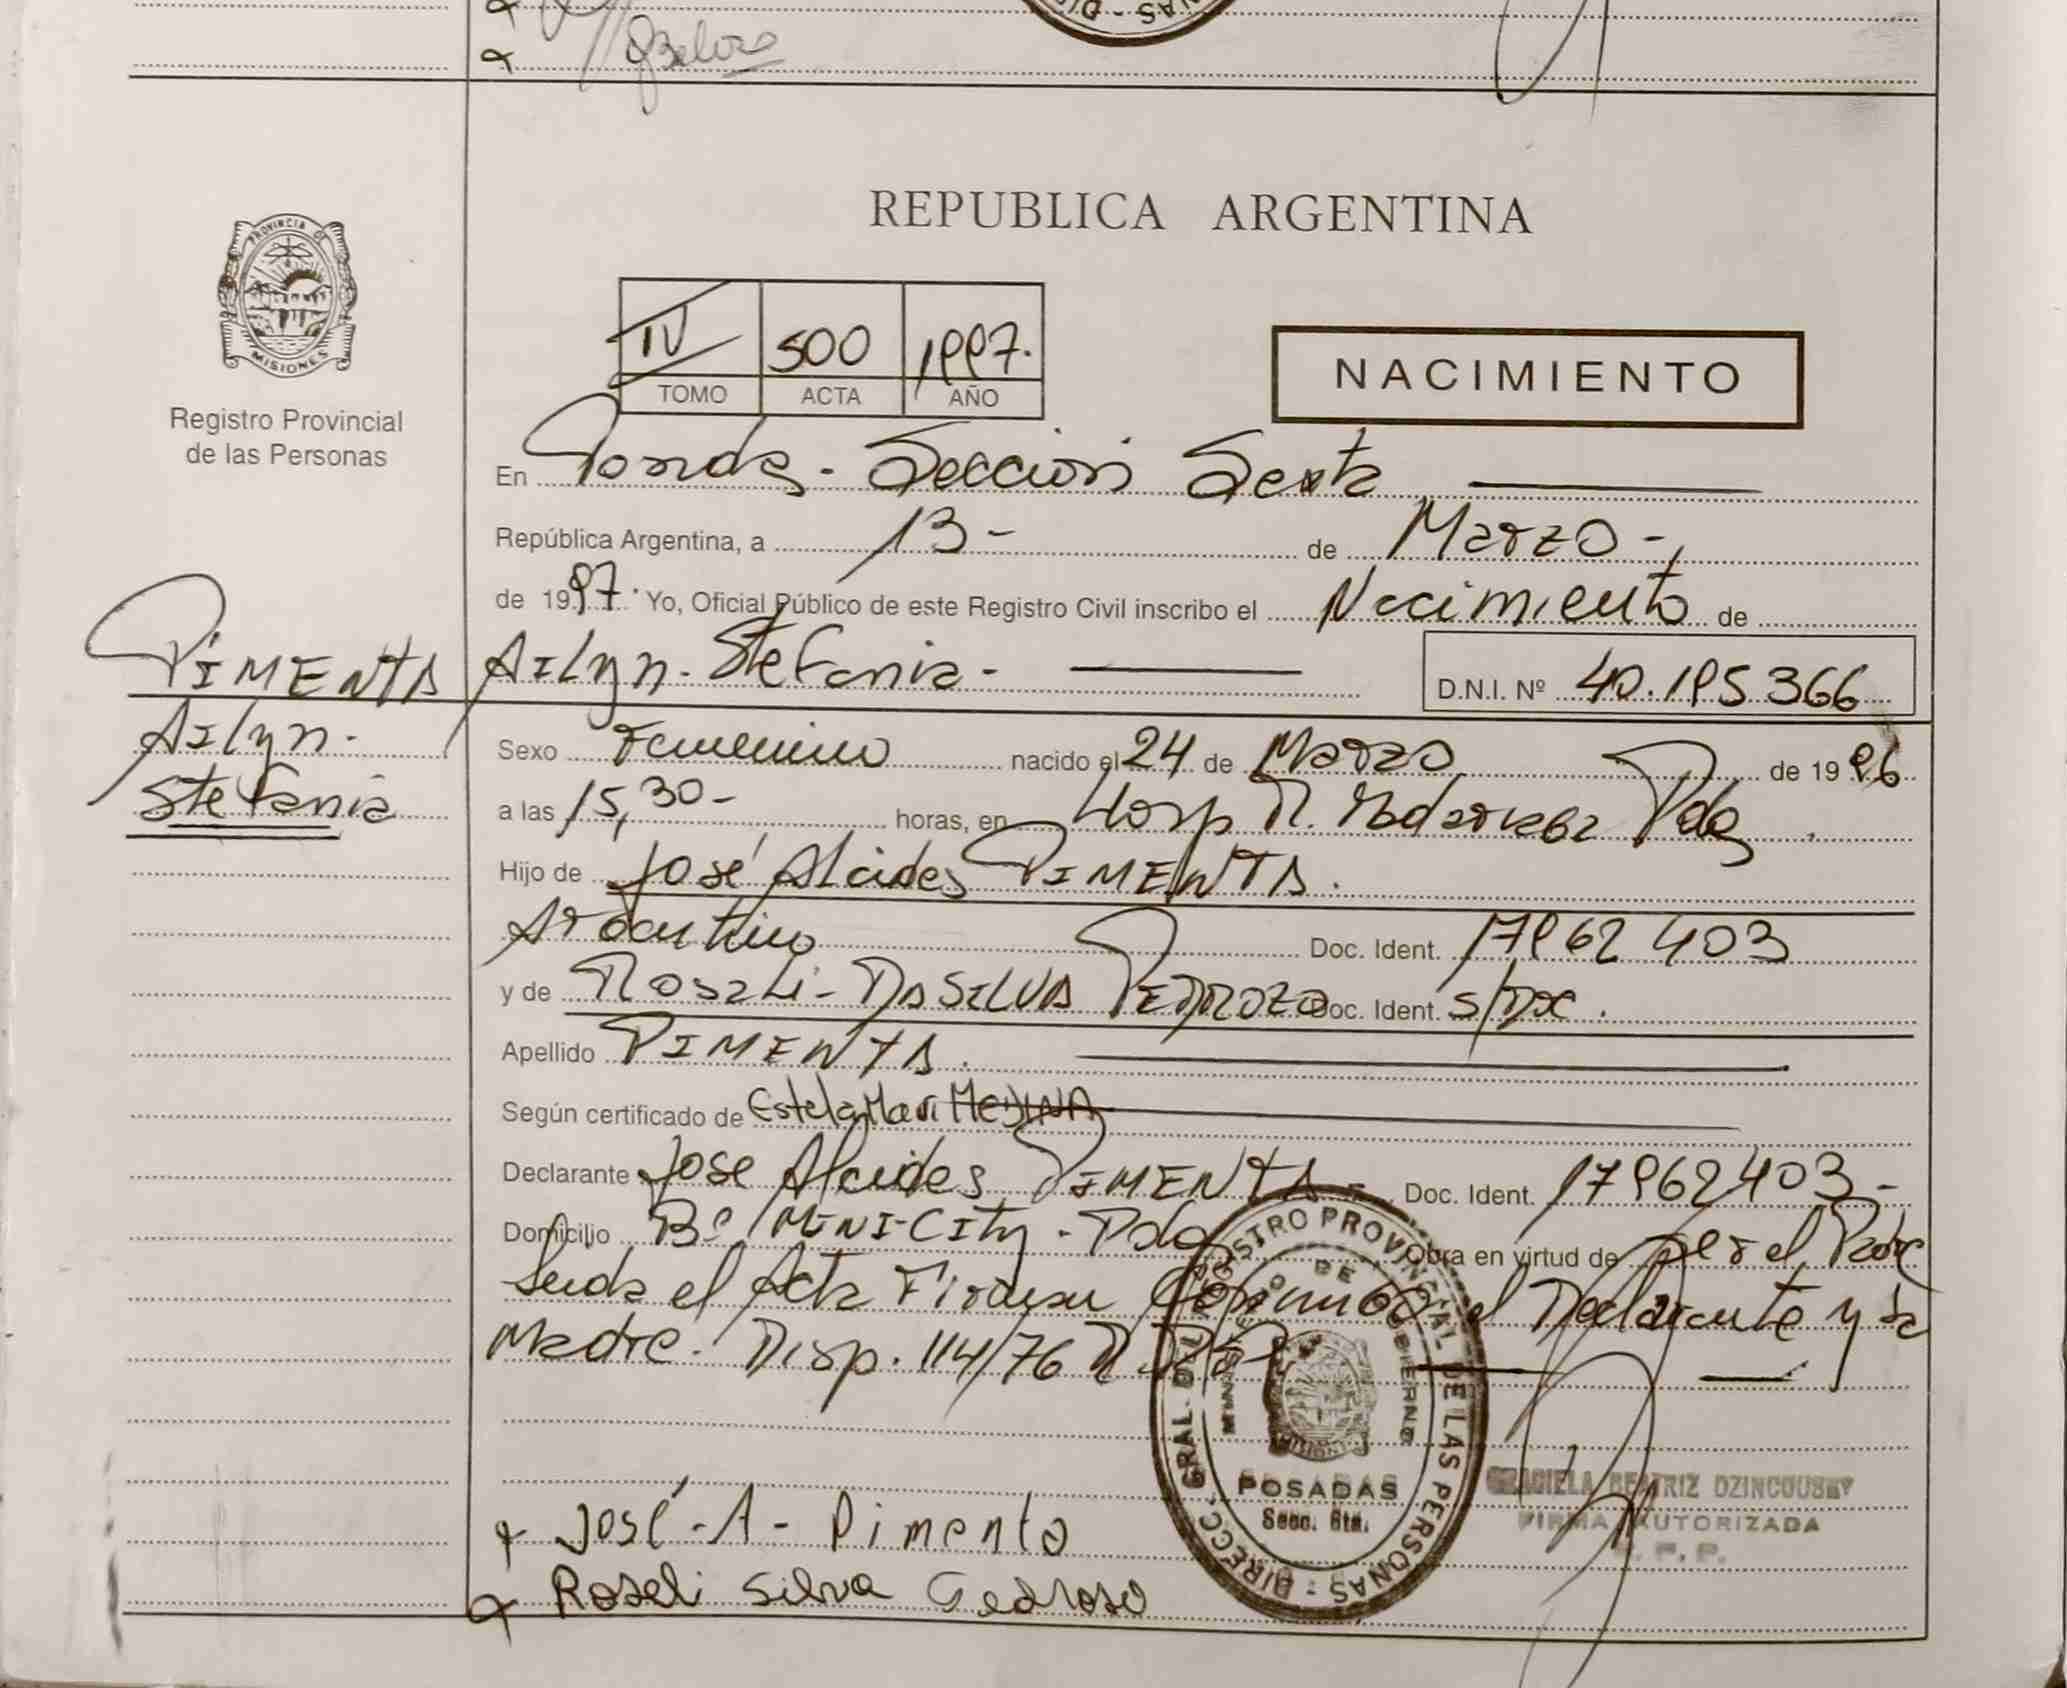 Obelosa
REPUBLICA ARGENTINA
PROVINCIA DE
MISIONES
Registro Provincial
de las Personas
IV 500 1997.
TOMO ACTA AÑO
NACIMIENTO
En Posadas - Sección Sexta
República Argentina, a 13 - de Marzo -,
de 1997. Yo, Oficial Público de este Registro Civil inscribo el Nacimiento de
PIMENTA Ailyn. Stefania - D.N.I. Nº 40.195.366
Ailyn.
Stefania
Sexo Femenino nacido el 24 de Marzo de 1996
a las 15,30 - horas, en Hosp R. Madariaga Pdas
Hijo de José Alcides PIMENTA.
Argentino Doc. Ident. 17962403
y de Roseli - DA SILVA PEDROZO Doc. Ident. S/Doc.
Apellido PIMENTA.
Según certificado de Estela Mari MEDINA
Declarante Jose Alcides PIMENTA - Doc. Ident. 17962403 -
Domicilio Bº MINI-City - Pdas Obra en virtud de ser el Padre
Leida el Acta Firman Conmigo el Declarante y la
Madre. Disp. 114/76
DIRECC. GRAL. DEL REGISTRO PROVINCIAL DE LAS PERSONAS
MINISTERIO DE GOBIERNO
POSADAS
Secc. 6ta.
GRACIELA BEATRIZ DZINCOUSKY
FIRMA AUTORIZADA
José - A - Pimenta
Roseli Silva Pedroso